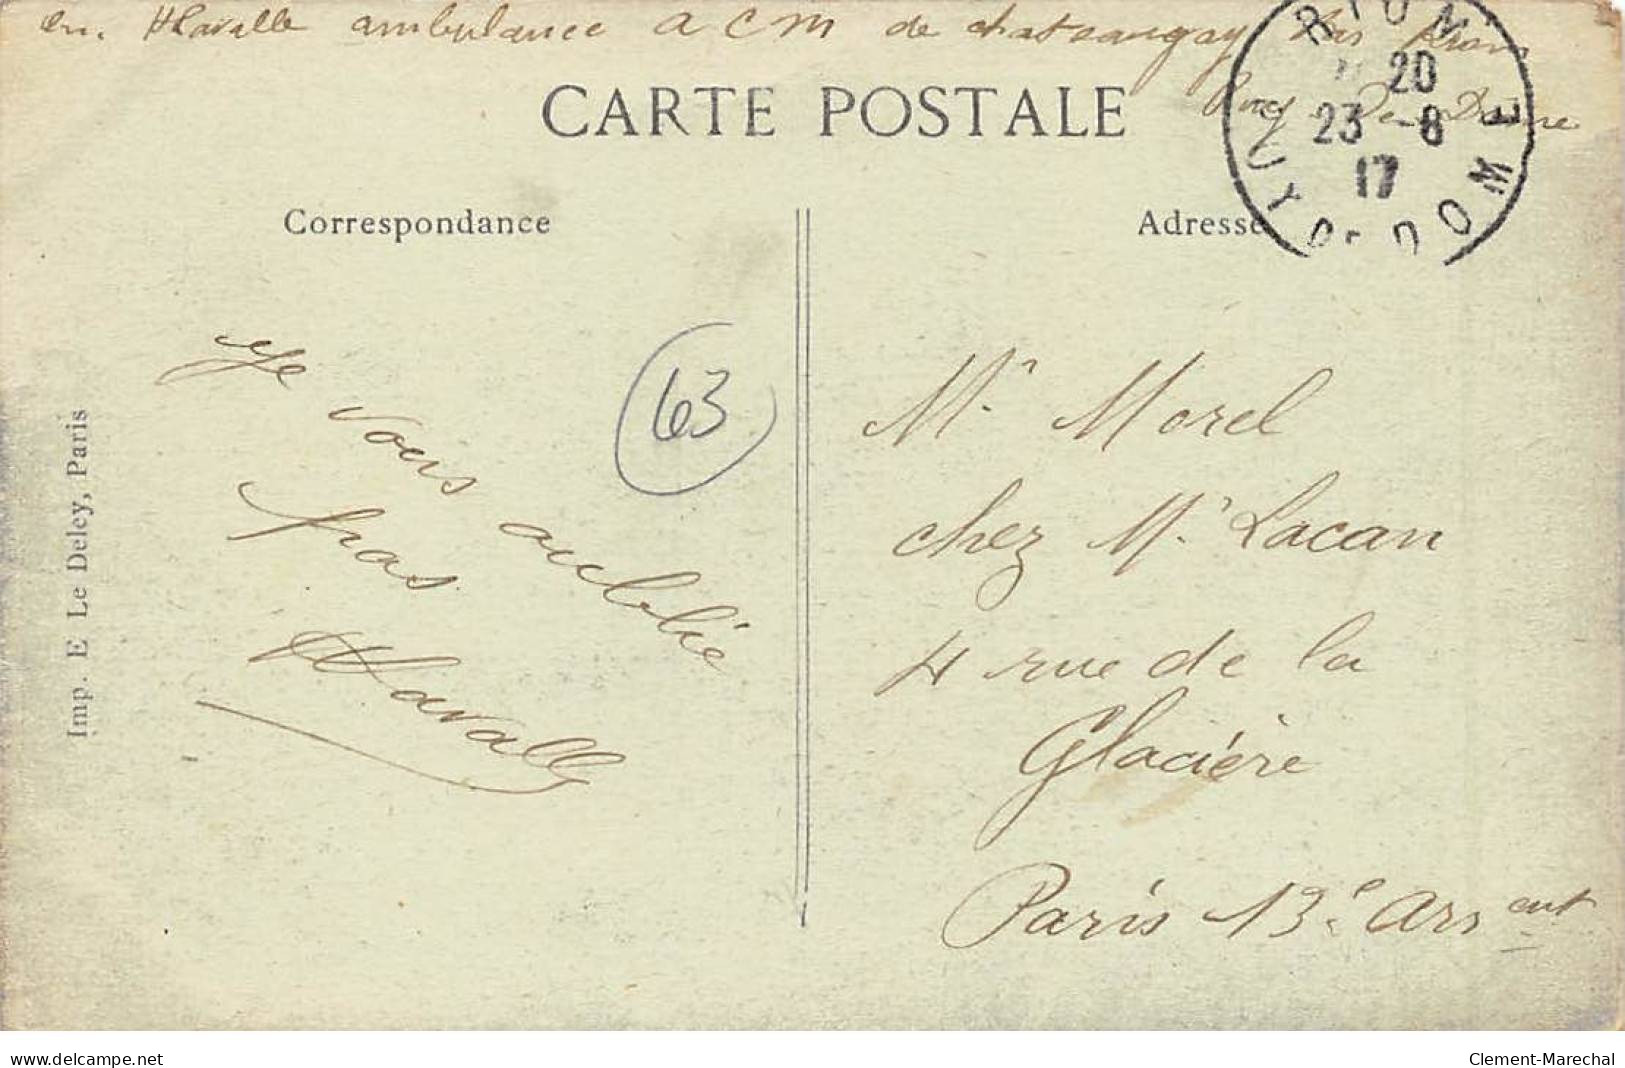 en. Havalle ambulance A C M de chateaugay par Riom
Puy De Dôme
CARTE POSTALE
RIOM
20
23 -8
17
PUY-DE-DOME
Correspondance
Adresse
63
Je
vous oublie
pas
Havalle
Mr Morel
chez Mr Lacan
4 rue de la
Glacière
Paris 13e Arrent
Imp. E Le Deley, Paris
www.delcampe.net
Clement-Marechal